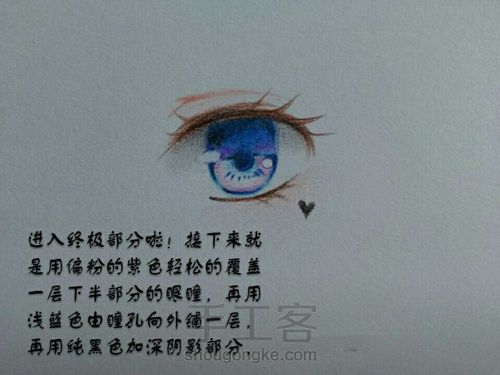 进入终极部分啦！接下来就
是用偏粉的紫色轻松的覆盖
一层下半部分的眼瞳，再用
浅蓝色由瞳孔向外铺一层，
再用纯黑色加深阴影部分．
手工客
shougongke.com